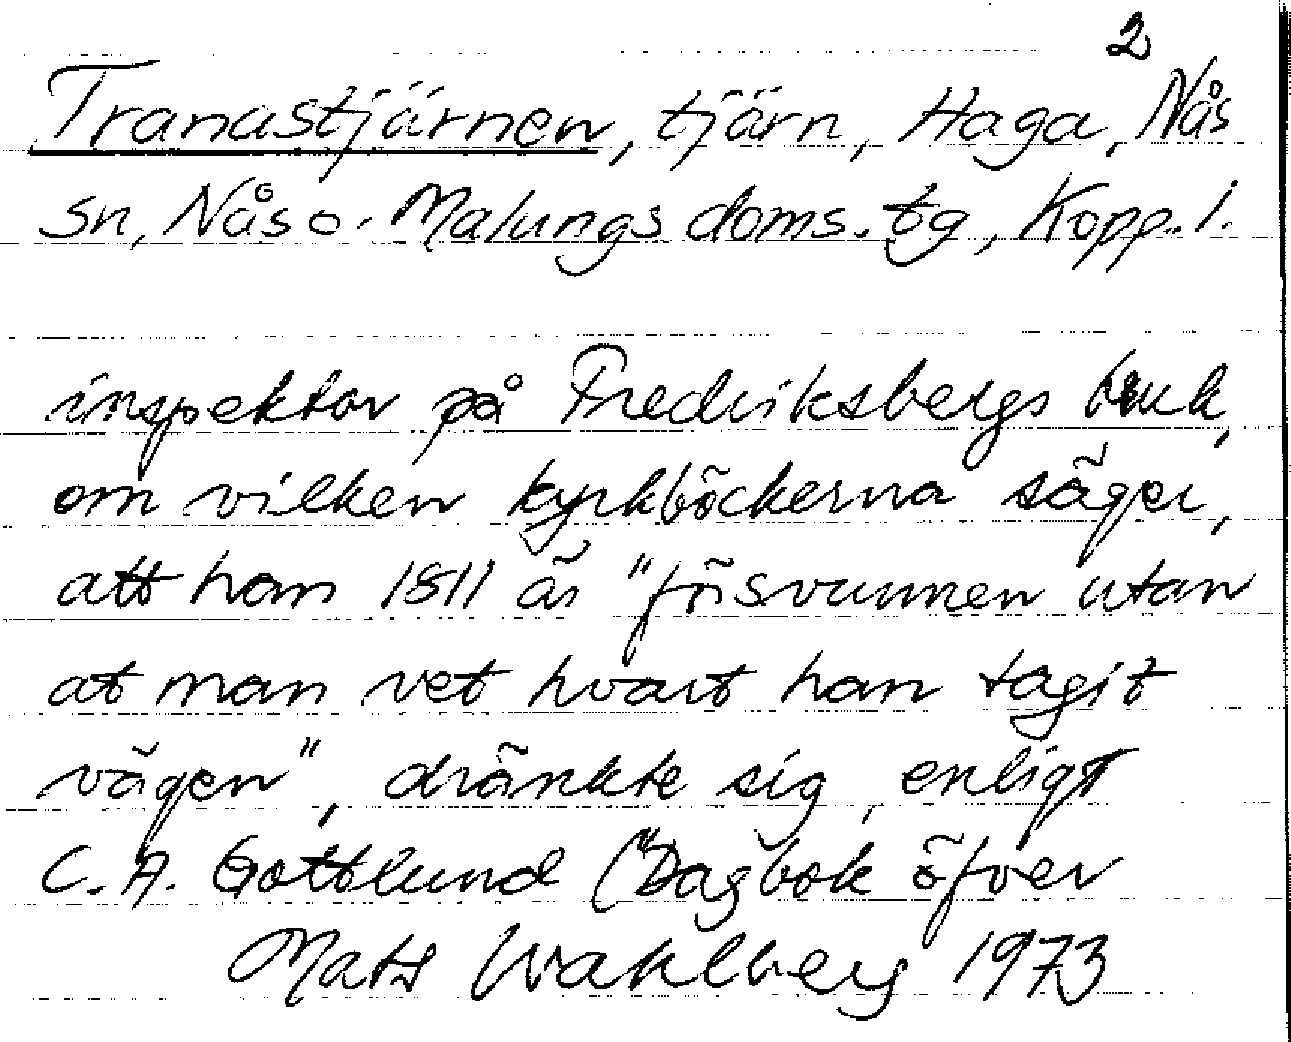 2
Tranastjärnen, tjärn, Haga, Nås
sn, Nås o. Malungs doms. tg, Kopp. l.
inspektor på Fredriksbergs bruk,
om vilken kyrkböckerna säger,
att han 1811 är "försvunnen utan
at man vet hvart han tagit
vägen", dränkte sig, enligt
C. A. Gottlund ("Dagbok öfver
Mats Wahlberg 1973